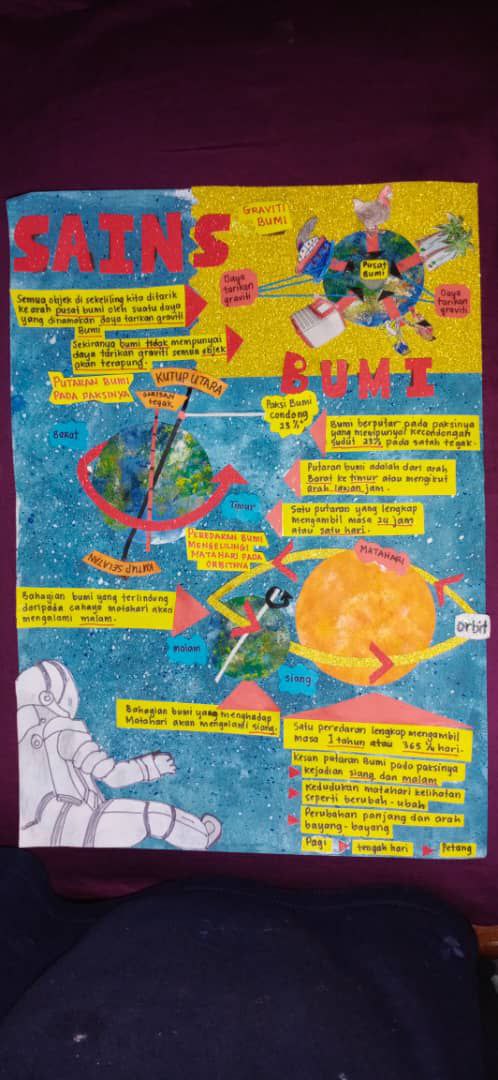 SAINS
GRAVITI
BUMI
Semua objek di sekeliling kita ditarik
ke arah pusat bumi oleh suatu daya
yang dinamakan daya tarikan graviti
Bumi
Sekiranya bumi tidak mempunyai
daya tarikan graviti semua objek
akan terapung.
Daya
tarikan
graviti
Pusat
Bumi
Daya
tarikan
graviti
BUMI
PUTARAN BUMI
PADA PAKSINYA
KUTUP UTARA
GARISAN
tegak
Paksi Bumi
condong
23 ½°
Barat
Timur
KUTUP SELATAN
Bumi berputar pada paksinya
yang mempunyai kecondongan
sudut 23½ pada satah tegak.
Putaran bumi adalah dari arah
Barat ke timur atau mengikut
arah lawan jam.
Satu putaran yang lengkap
mengambil masa 24 jam
atau satu hari.
PEREDARAN BUMI
MENGELILINGI
MATAHARI PADA
ORBITNYA
MATAHARI
orbit
Bahagian bumi yang terlindung
daripada cahaya matahari akan
mengalami malam.
malam
siang
Bahagian bumi yang menghadap
Matahari akan mengalami siang.
Satu peredaran lengkap mengambil
masa 1 tahun atau 365 ¼ hari.
Kesan putaran Bumi pada paksinya
kejadian siang dan malam
Kedudukan matahari kelihatan
seperti berubah-ubah
Perubahan panjang dan arah
bayang-bayang
Pagi
tengah hari
Petang